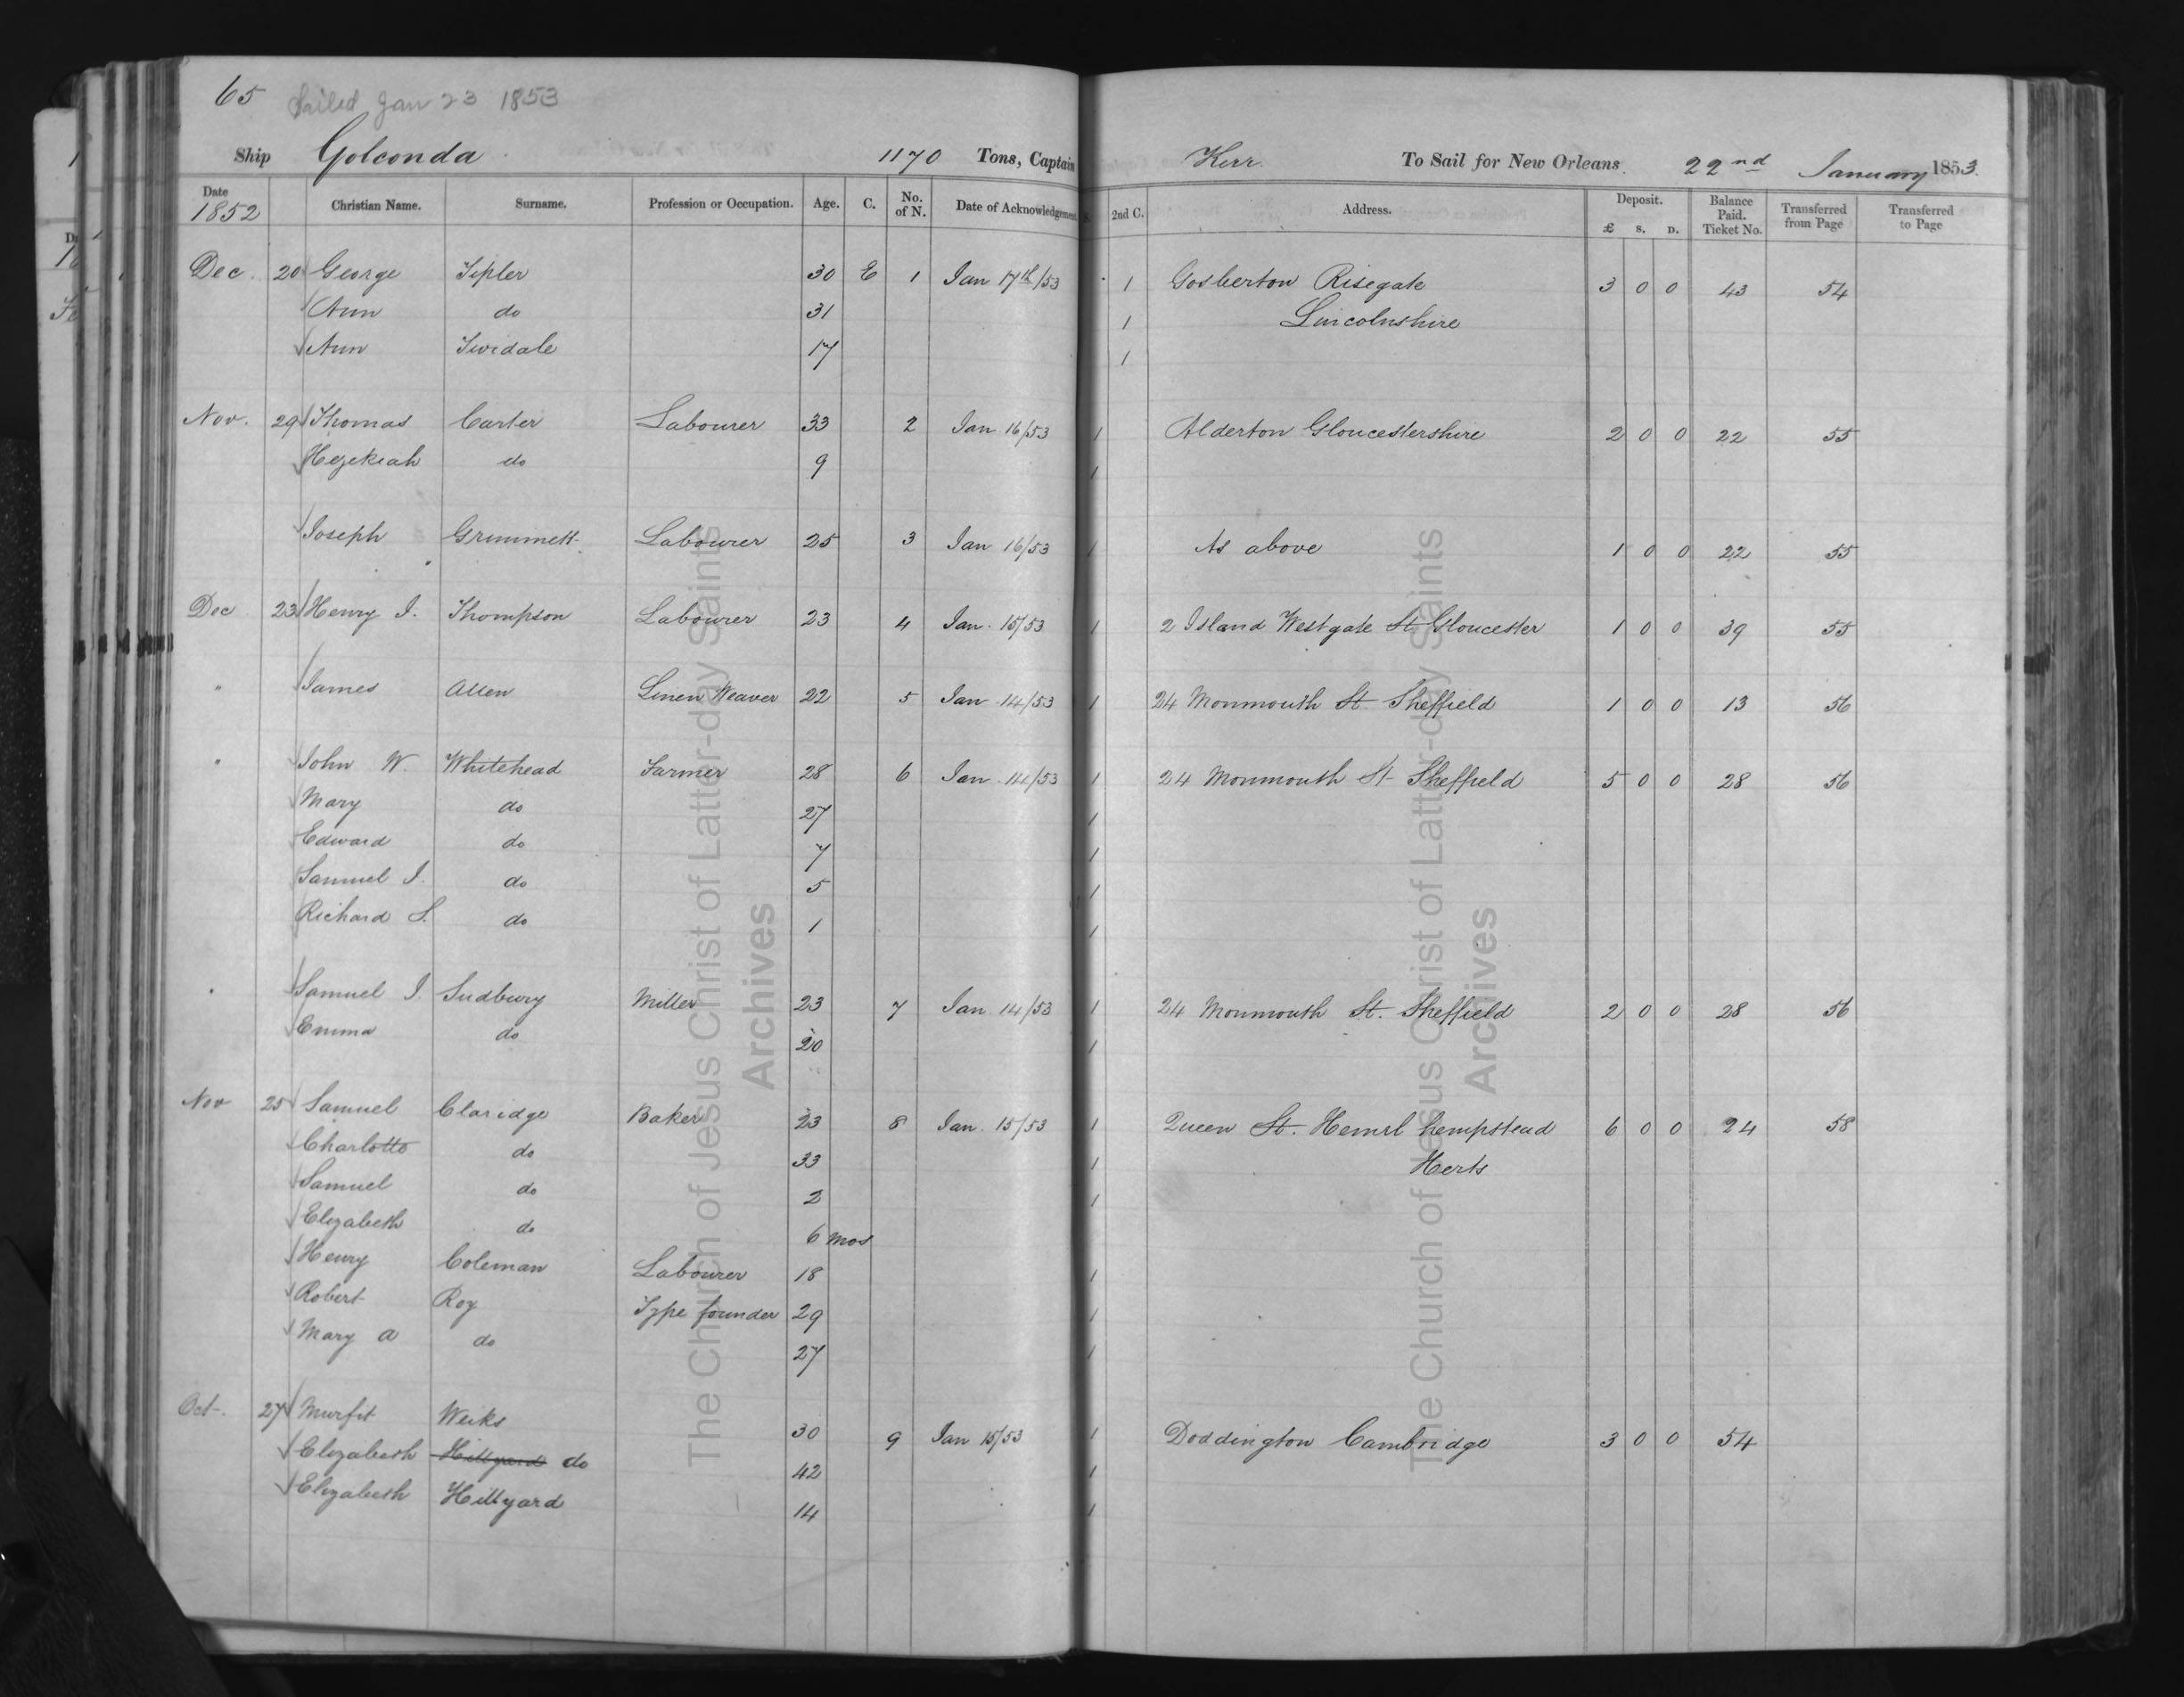 65 Sailed Jan 23 1853
Ship Golconda 1170 Tons, Captain Kerr. To Sail for New Orleans. 22nd January 1853.
Date 1852 Christian Name. Surname. Profession or Occupation. Age. C. No. of N. Date of Acknowledgement. S. 2nd C. Address. Deposit. £ S. D. Balance Paid. Ticket No. Transferred from Page Transferred to Page
Dec. 20 George Tipler 30 E 1 Jan 17th/53 1 Gosberton Risegate 3 0 0 43 54
Ann do 31 1 Lincolnshire
Ann Twidale 17 1
Nov. 29 Thomas Carter Labourer 33 2 Jan 16/53 1 Alderton Gloucestershire 2 0 0 22 55
Hezekiah do 9 1
Joseph Grimmett Labourer 25 3 Jan 16/53 1 As above 1 0 0 22 55
Dec 23 Henry J. Thompson Labourer 23 4 Jan. 15/53 1 2 Island Westgate St Gloucester 1 0 0 39 55
" James Allen Linen Weaver 22 5 Jan 14/53 1 24 Monmouth St Sheffield 1 0 0 13 56
" John W. Whitehead Farmer 28 6 Jan 14/53 1 24 Monmouth St Sheffield 5 0 0 28 56
Mary do 27 1
Edward do 7 1
Samuel J. do 5 1
Richard S. do 1 1
" Samuel J. Sudbury Miller 23 7 Jan 14/53 1 24 Monmouth St. Sheffield 2 0 0 28 56
Emma do 20 1
Nov 25 Samuel Claridge Baker 23 8 Jan. 15/53 1 Queen St. Hemel hempstead 6 0 0 24 58
Charlotte do 33 1 Herts
Samuel do 2 1
Elizabeth do 6 mos
Henry Coleman Labourer 18 1
Robert Roy Type founder 29 1
Mary A do 27 1
Oct. 27 Murfit Weiks 30 9 Jan 15/53 1 Doddington Cambridge 3 0 0 54
Elizabeth Hillyard do 42 1
Elizabeth Hillyard 14 1
The Church of Jesus Christ of Latter-day Saints
Archives
The Church of Jesus Christ of Latter-day Saints
Archives